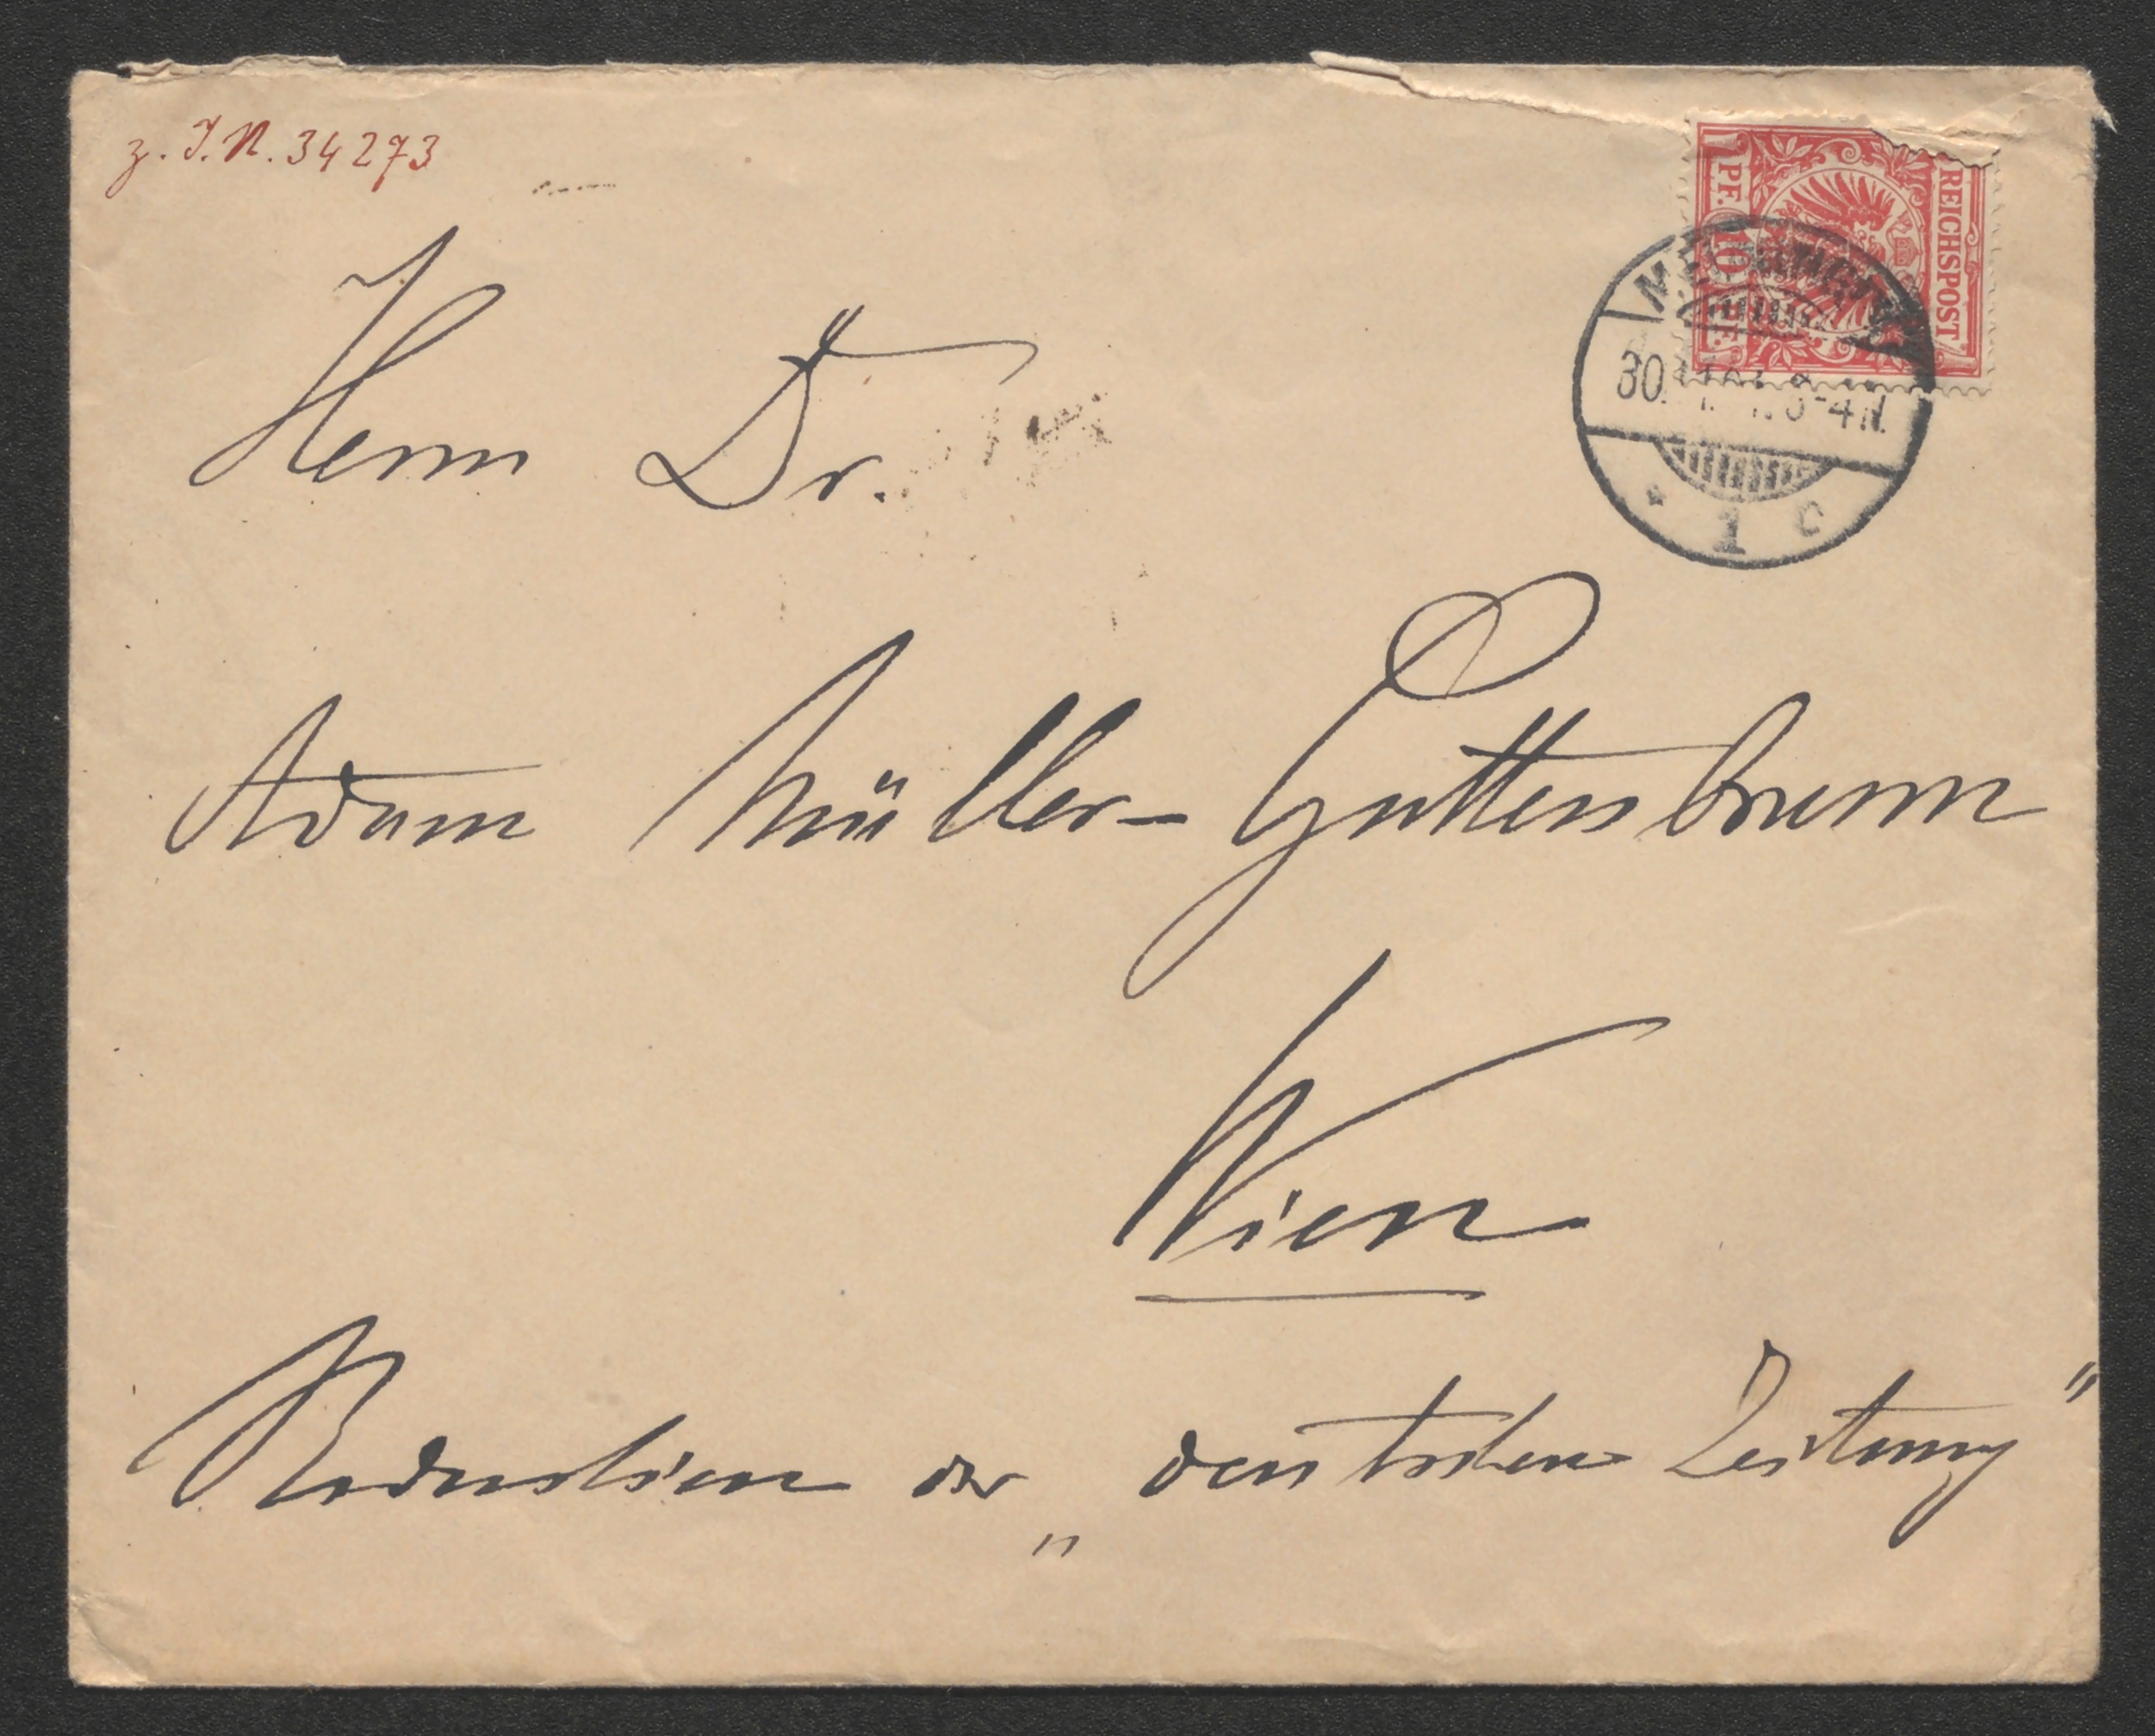 z. I. N. 34273
REICHSPOST
PF. 10 PF.
30.
3-4 N.
1 c
Herrn Dr.
Adam Müller-Guttenbrunn
Wien
Redaction der „deutschen Zeitung"